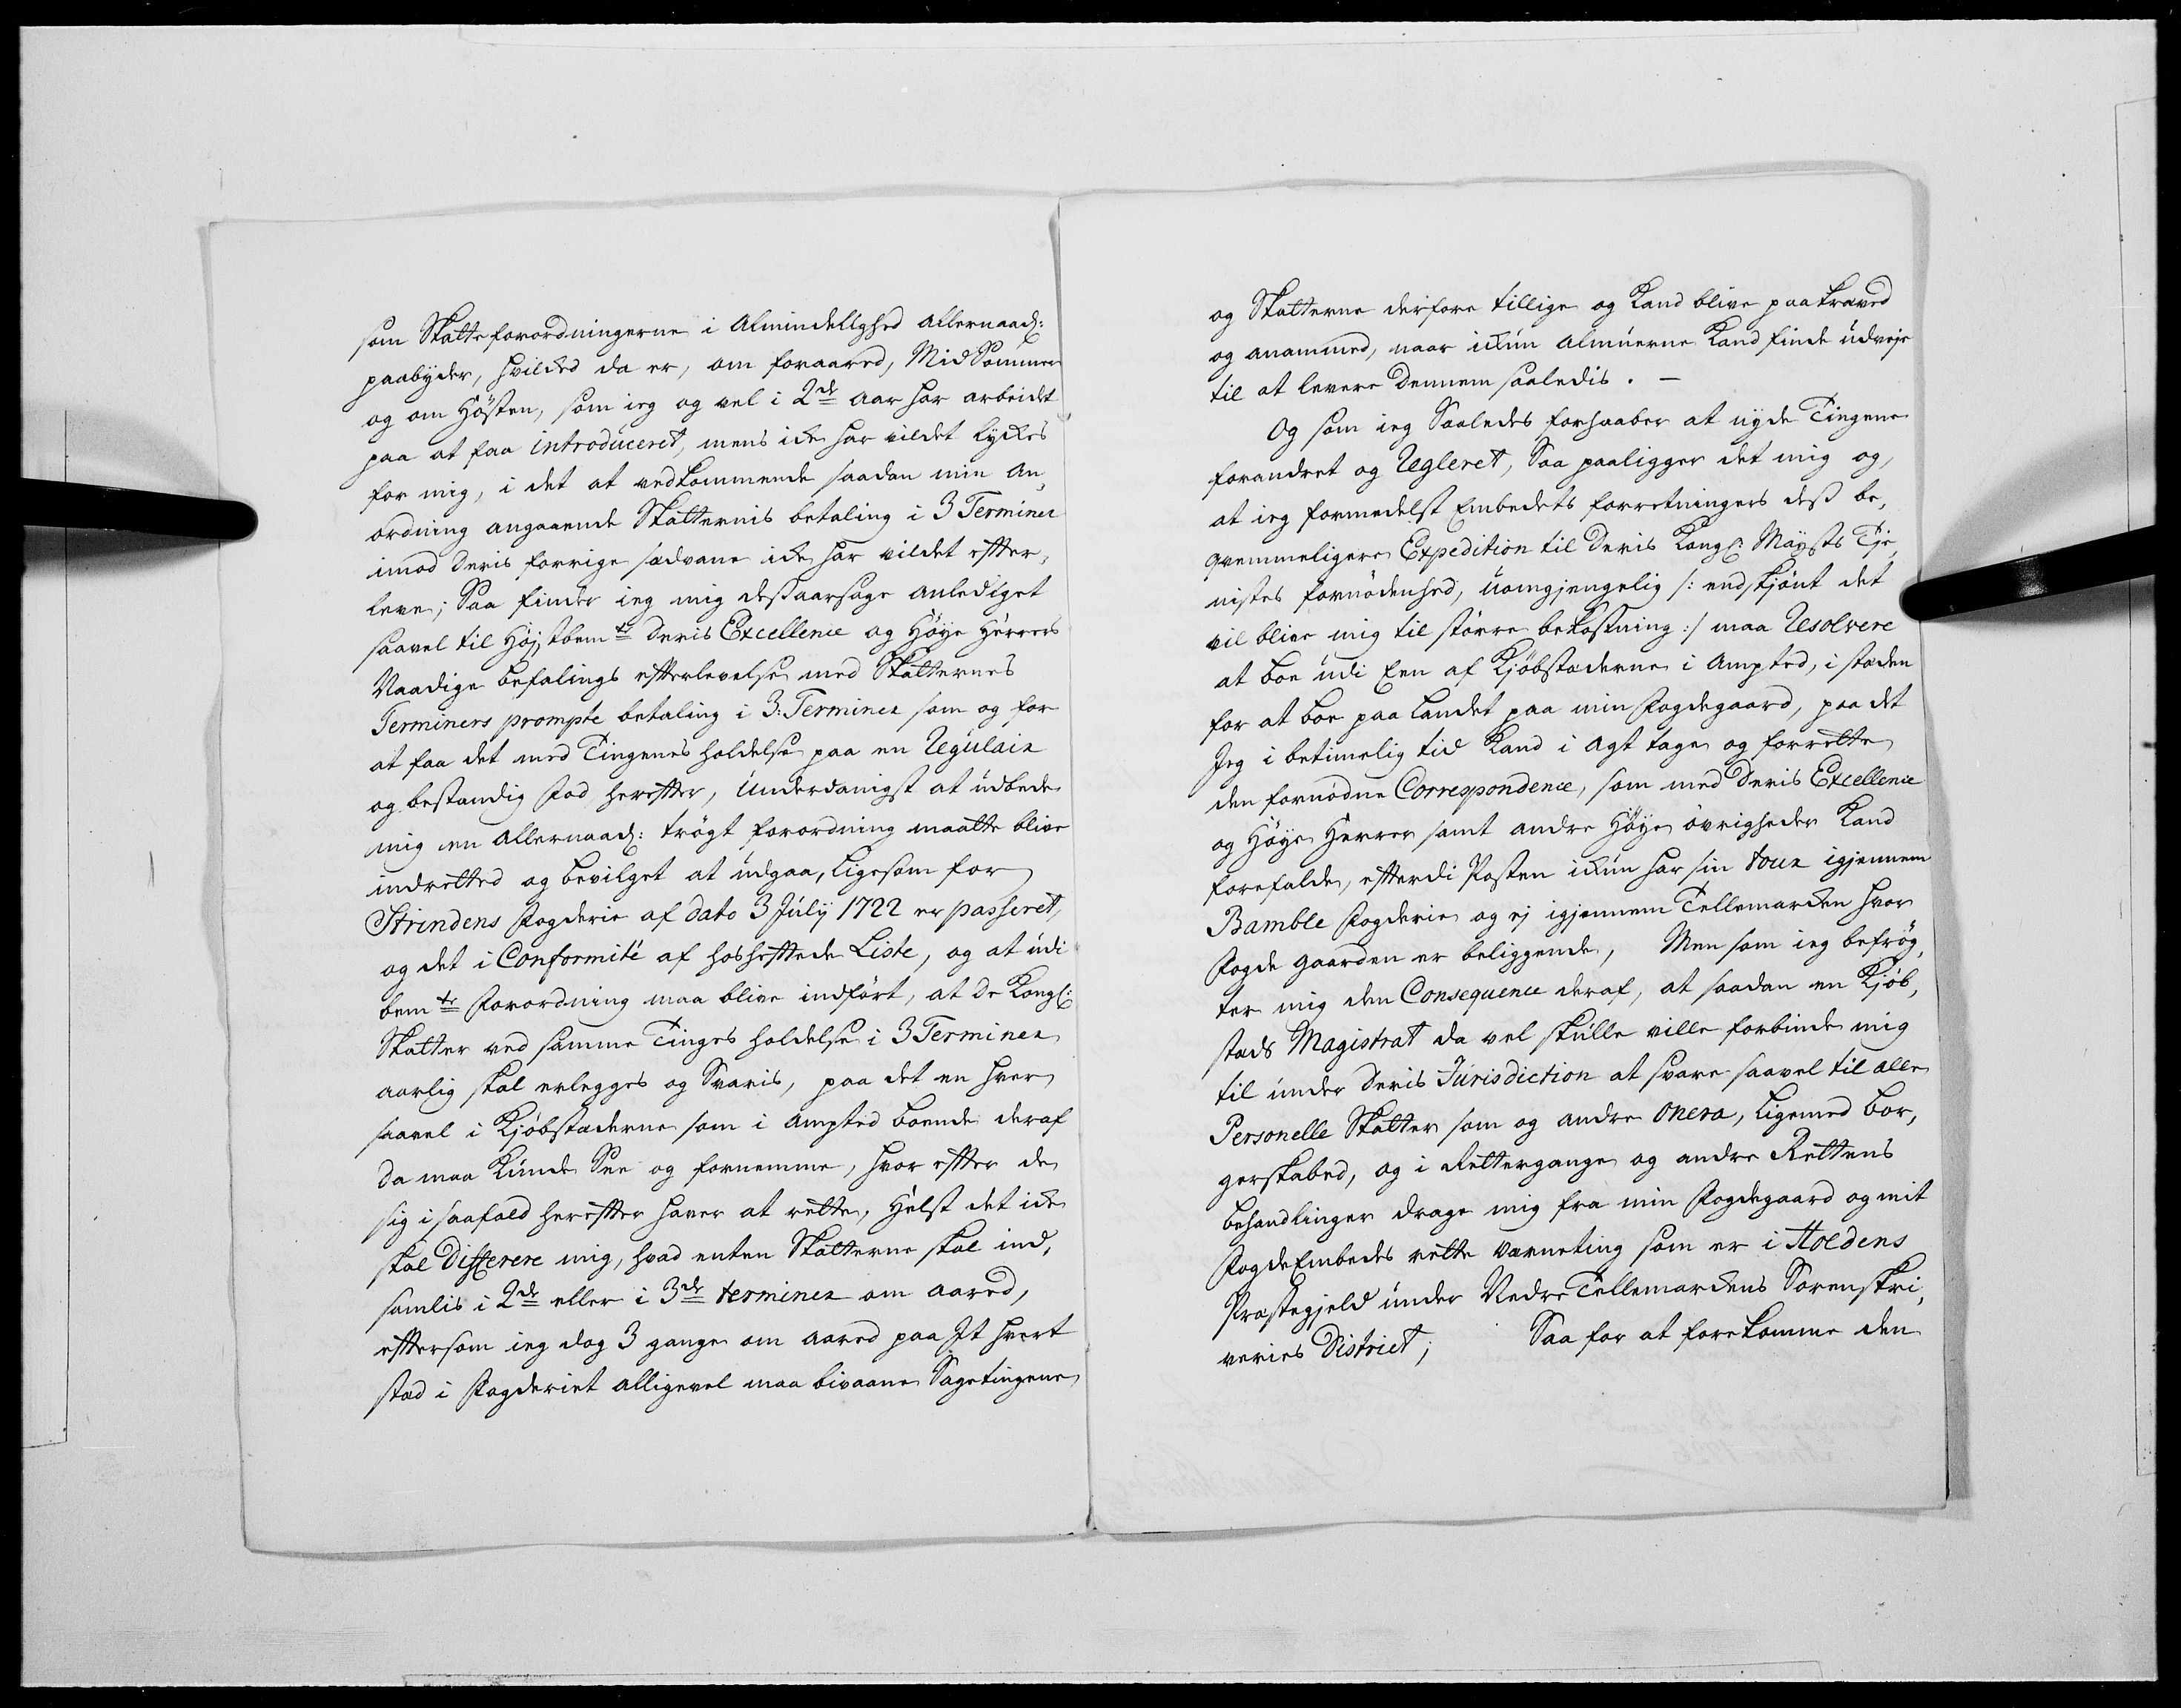 som Skatteforordningerne i Almindelighed allernaad:
paabyder, hvilked da er, om foraared, MidSommer
og om Høsten, som ieg og vel i 2de aar har arbeidet
paa at faa introduceret, mens icke har vildet lyckes
for mig, i det at vedkommende saadan min an,
ordning angaaende Skatternis betaling i 3 Terminer
imod deris forrige sædvane icke har vildet efter,
leve; Saa finder ieg mig desaarsage anlediget
saavel til Højstbemte Deris Excellence og Høye Herrers
Naadige befalings efterlevelse med Skatternes
Terminers prompte betaling i 3: Terminer som og for
at faa det med Tingenes holdelse paa en Regulair
og bestandig Fod herefter, Underdanigst at udbede
mig en allernaad: trøgt forordning maatte blive
indretted og bevilget at udgaa, ligesom for
Strindens Fogderie af dato 3 July 1722 er passeret,
og det i Conformité af hosheftede Liste, og at udi
bemte Forordning maa blive indført, at de Kongl:
Skatter ved samme Tinges holdelse i 3 Terminer
aarlig skal erlegges og Svaris, paa det en hver
saavel i Kjøbstæderne som i Ampted boende deraf
da maa kunde See og fornemme, hvor efter de
sig i saafald herefter haver at rette, Helst det icke
skal Differere mig, hvad enten Skatterne skal ind,
samlis i 2de eller i 3de terminer om aared,
eftersom ieg dog 3 gange om aared paa It hvert
stæd i Fogderiet alligevel maa bivaane Sagetingene
og Skatterne derfore tillige og kand blive paakræved
og anammed, naar ickun almuerne kand finde udveje
til at levere dennem saaledis. -
Og som ieg Saaledes forhaaber at nyde Tingene
forandret og Regleret, Saa paaligger det mig og,
at ieg formedelst Embedets forretningers dess be,
qvemmeligere Expedition til deris Kongl: Mayts Tje,
nistes fornødenhed, uomgjengelig /: endskjønt det
vil blive mig til større bekostning :/ maa Resolvere
at boe udi Een af Kjøbstæderne i Ampted, i stæden
for at boe paa Landet paa min Fogdegaard, paa det
Jeg i betimelig tid kand i agt tage og forrette
den fornødne Correspondence, som med Deris Excellence
og Høye Herrer samt andre Høye øvrigheder kand
forefalde, efterdi Posten ickun har sin tour igjennem
Bamble Fogderie og ej igjennem Tellemarcken hvor
Fogde gaarden er beliggende, Men som ieg befrøg,
ter mig den Consequence deraf, at saadan en Kjøb,
stæds Magistrat da vel skulle ville forbinde mig
til under deris Jurisdiction at svare saavel til alle
Personelle Skatter som og andre onera, ligemed bor,
gerskabed, og i Rettergange og andre Rettens
behandlinger drage mig fra min Fogdegaard og mit
FogdeEmbeds rette værneting som er i Holdens
Præstegjeld under Nedre Tellemarckens Sorenskri,
veries District; Saa for at forekomme den